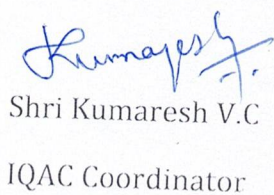 Kumaresh
Shri Kumaresh V.C
IQAC Coordinator